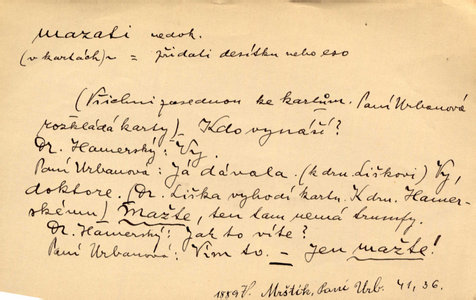 mazati nedok.
(v kartách) = přidati desítku nebo eso
(Všichni zasednou ke kartům. Paní Urbanová
rozkládá karty) – Kdo vynáší?
Dr. Hamerský: Vy.
Paní Urbanová: Já dávala. (k dru. Liškovi) Vy,
doktore. (Dr. Liška vyhodí kartu. K dru. Hamer-
skému) Mažte, ten tam nemá trumfy.
Dr. Hamerský: Jak to víte?
Paní Urbanová: Vím to. – Jen mažte!
1889 V. Mrštík, Paní Urb. 41, 36.